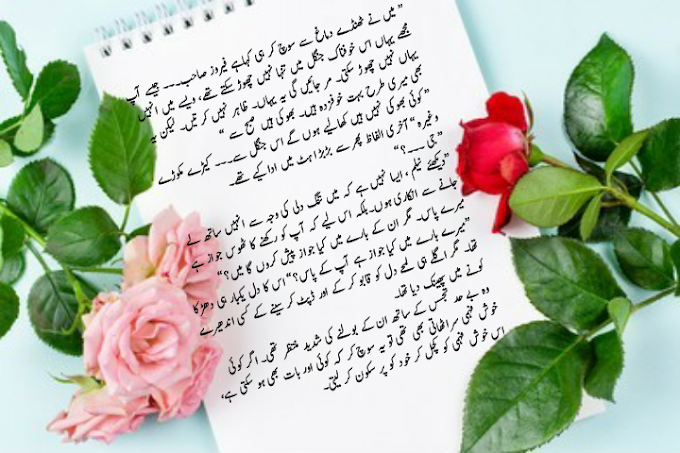 "میں نے ٹھنڈے دماغ سے سوچ کر ہی کہا ہے فیروز صاحب۔۔۔ جیسے آپ
مجھے یہاں اس خوفناک جنگل میں تنہا نہیں چھوڑ سکتے تھے، ویسے میں انہیں
یہاں نہیں چھوڑ سکتی۔ مر جائیں گی یہ یہاں۔ ظاہر نہیں کرتیں۔ لیکن یہ
بھی میری طرح بہت خوفزدہ ہیں۔ بھوکی ہیں صبح سے "
"کوئی بھوکی نہیں ہیں کھا لیے ہوں گے اس جنگل سے۔۔۔ کیڑے مکوڑے
وغیرہ" آخری الفاظ پھر سے بڑبڑاہٹ میں ادا کیے تھے۔
"جی ۔۔۔؟"
"دیکھئے نیلم، ایسا نہیں ہے کہ میں تنگ دلی کی وجہ سے انہیں ساتھ لے
جانے سے انکاری ہوں۔ بلکہ اس لیے کہ آپ کو رکھنے کا ٹھوس جواز ہے
میرے پاس۔ مگر ان کے بارے میں کیا جواز پیش کروں گا میں؟"
"میرے بارے میں کیا جواز ہے آپ کے پاس؟" اس کا دل یکبار ہی دھڑکا
تھا۔ مگر اگلے ہی لمحے دل کو قابو کر کے اور ڈپٹ کر سینے کے کسی اندھیرے
کونے میں پھینک دیا تھا۔
وہ بے حد تجسس کے ساتھ ان کے بولنے کی شدید منتظر تھی۔ اگر کوئی
خوش فہمی سر اٹھاتی بھی تھی تو یہ سوچ کر کہ کوئی اور بات بھی ہو سکتی ہے،
اس خوش فہمی کو کچل کر خود کو پر سکون کر لیتی۔